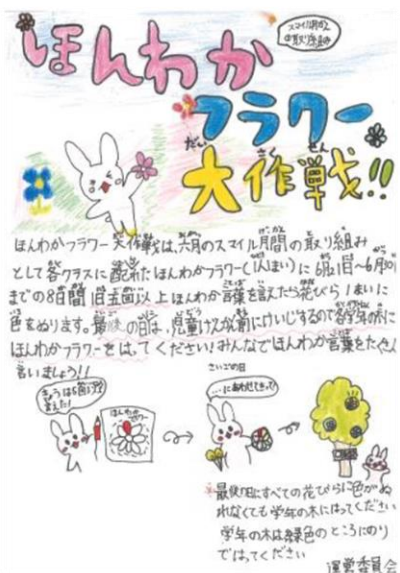 スマイル月かん
の取り組み
ほんわか
フラワー
大作戦!!
ほんわかフラワー大作戦は、六月のスマイル月間の取り組み
として各クラスに配られたほんわかフラワー(1人1まい)に6月21日〜6月30日
までの8日間1日五個以上ほんわか言葉を言えたら花びら1まいに
色をぬります。最後の日は、児童けんかん前にけいじするので各学年の木に
ほんわかフラワーをは,てください!みんなでほんわか言葉をたくさん
言いましょう!!
きょうは5箇
言えた!
ほんわか
フラワー
さいごの日
※最後の日にすべての花びらに色がぬ
れなくても学年の木にはってください
学年の木は緑色のところにのり
ではってください
運営委員会